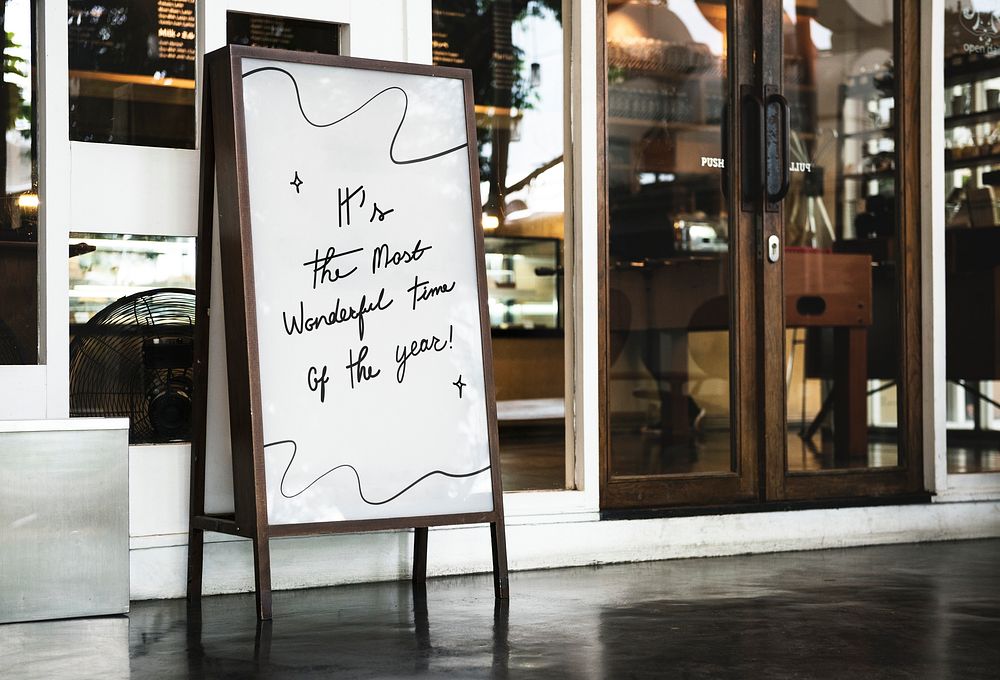 It's
the Most
Wonderful time
Of the year!
PUSH
PULL
open da
Milk +